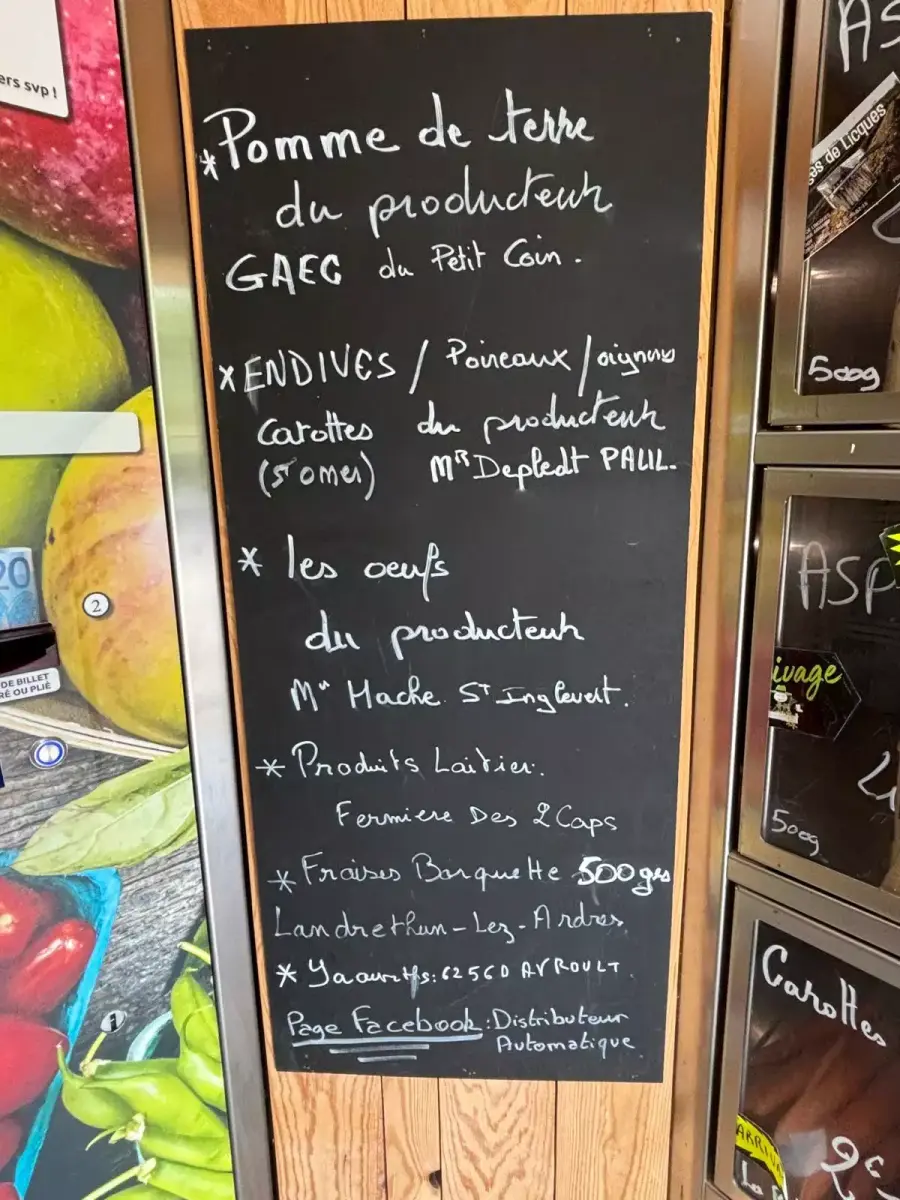 ers svp !
20
2
DE BILLET
RÉ OU PLIÉ
*Pomme de terre
du producteur
GAEC du Petit Coin.
*ENDIVES / Poireaux / oignons
Carottes du producteur
(St omer) Mr Depledt PAUL.
* les oeufs
du producteur
Mr Hache St Inglevert.
* Produits Laitier.
Fermiere Des 2 Caps
* Fraises Barquette 500grs
Landrethun-Lez-Ardres
* Yaourths: 62560 AVROULT.
Page Facebook: Distributeur
Automatique
AS
de Licques
500g
ASP
ivage
500g
Carottes
ARRIV
2€